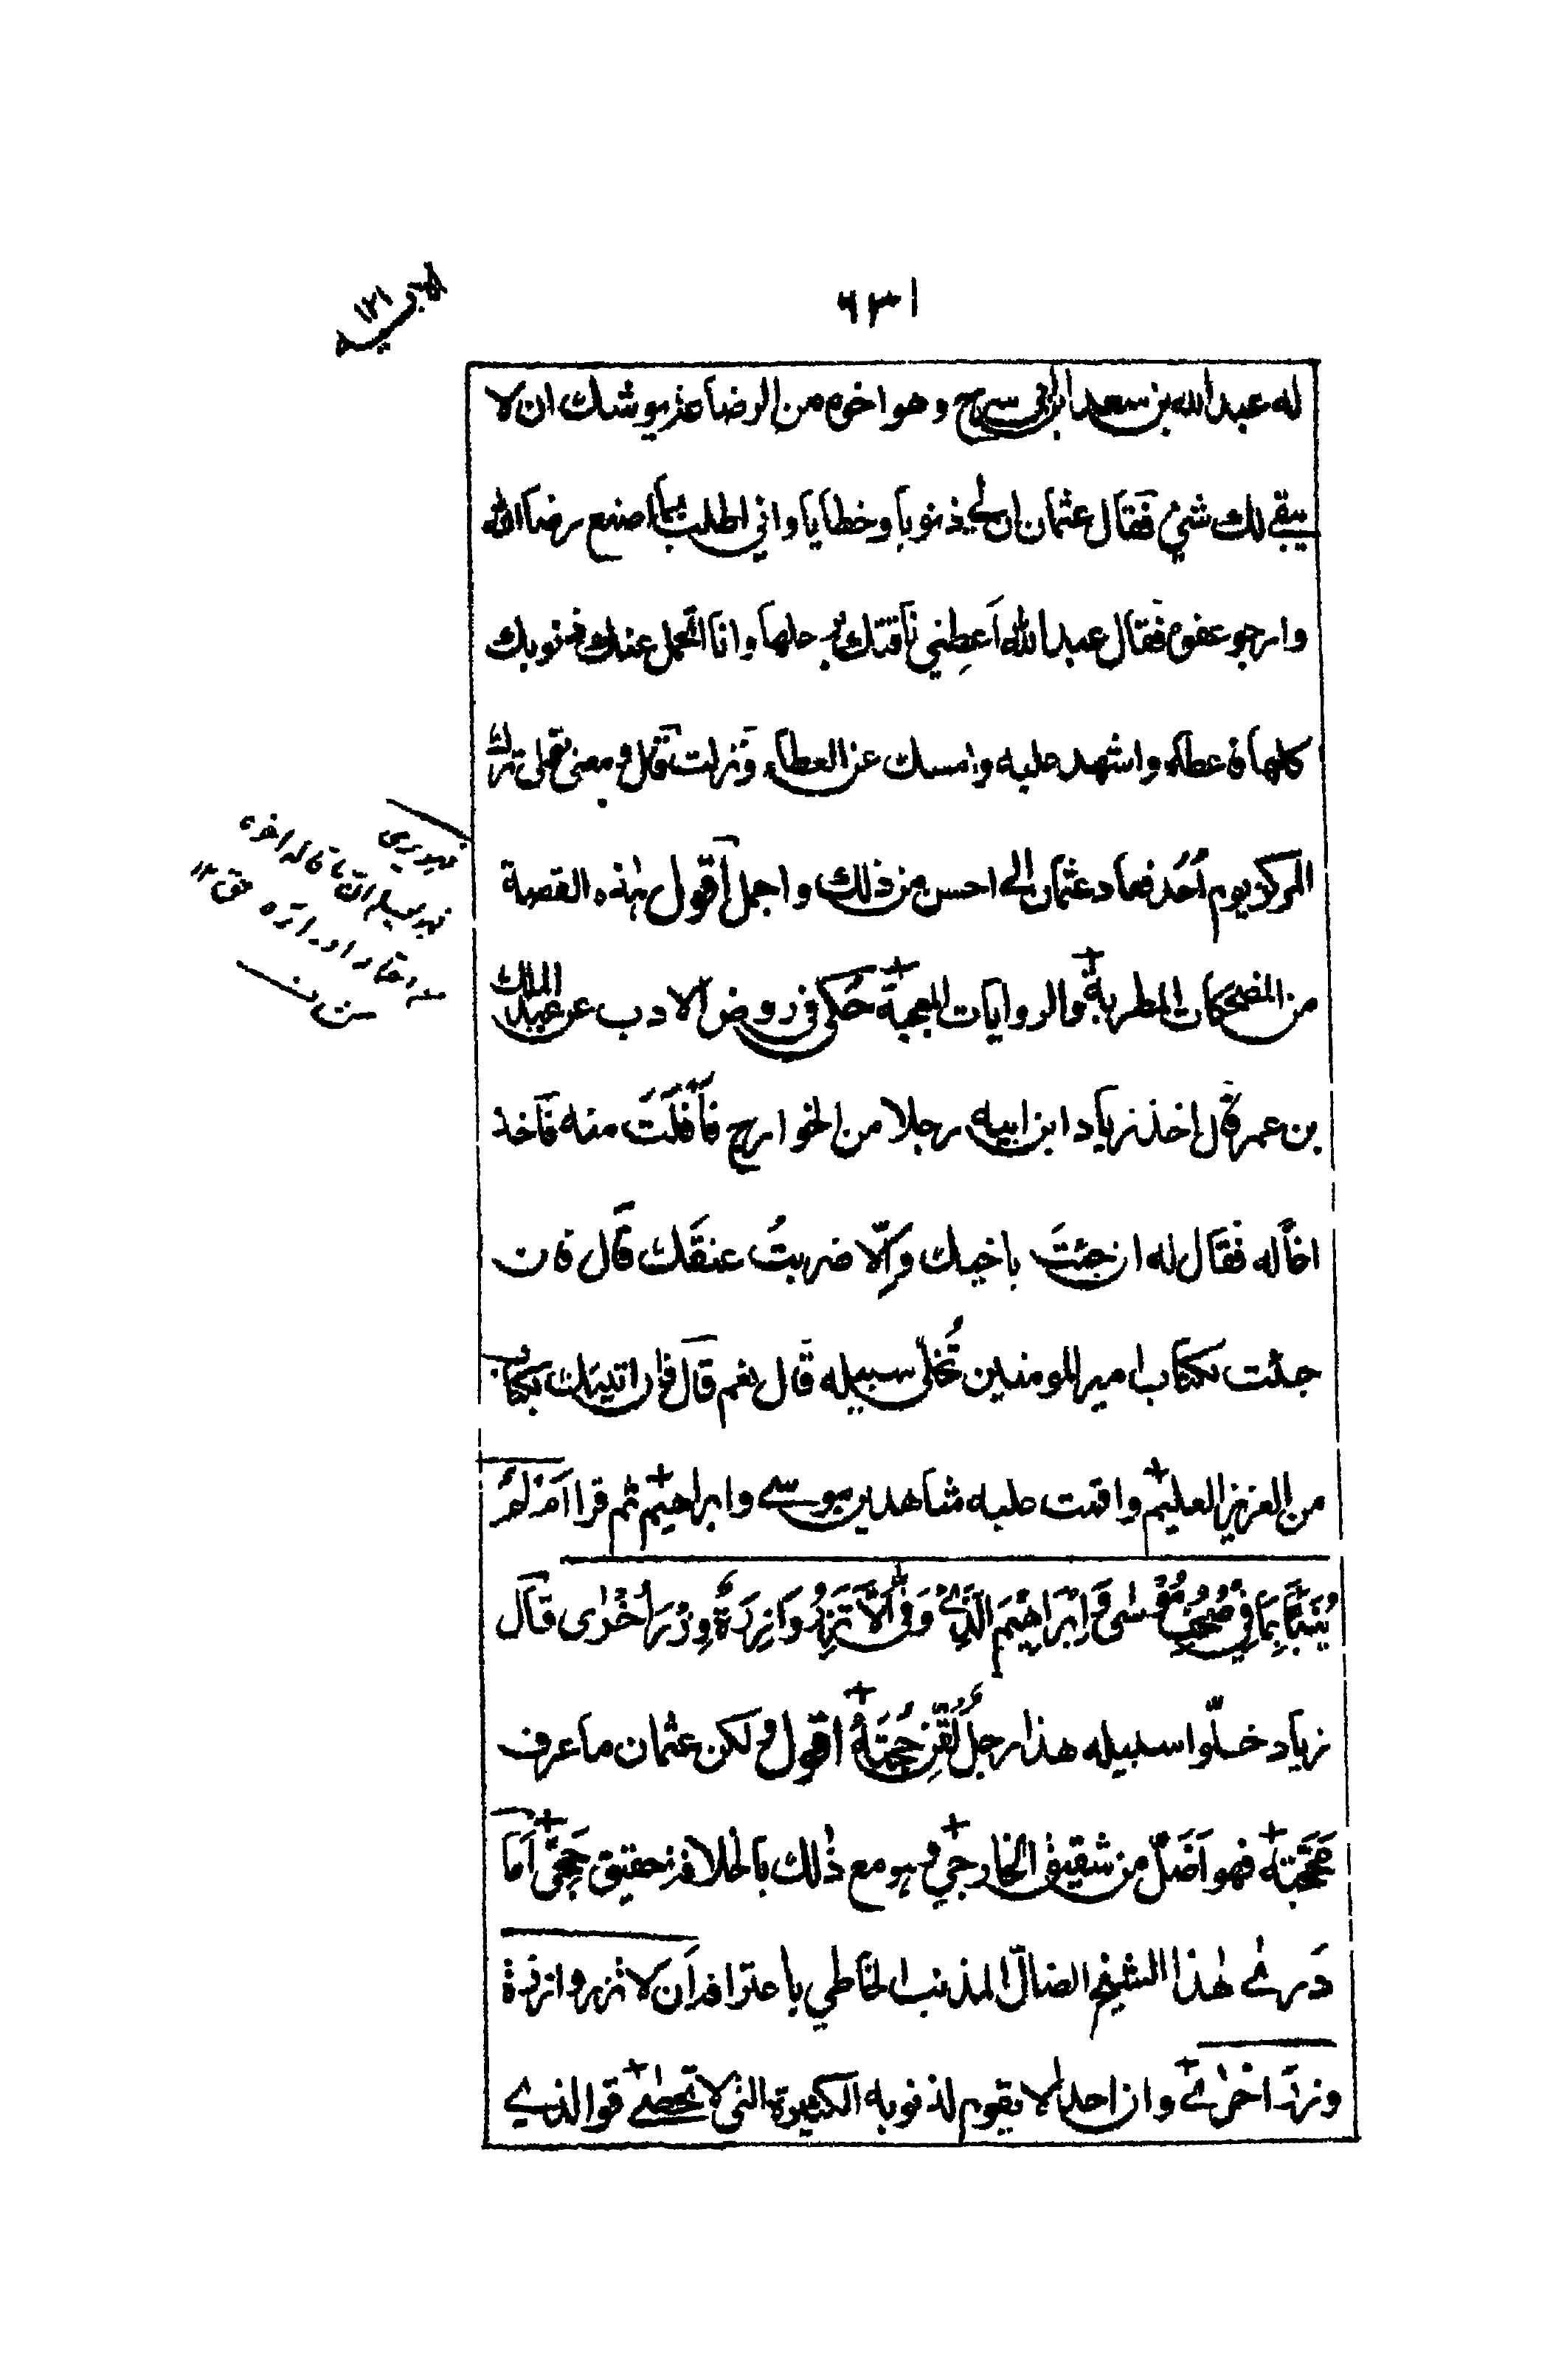 ١٣٦
له عبد الله بن سعد ابن ابي سرح وهو اخوه من الرضاعة يوشك ان لا
يبقى لك شيء فقال عثمان ان لي ذنوبا وخطايا واني اطلب بما اصنع رضا الله
وارجو عفوه فقال عبد الله اَعطِني ناقتك برحلها وانا اتحمل عنك ذنوبك
كلها فاعطاه واشهد عليه وامسك عن العطاء ونزلت قال و معنى تولى ترك
المركز يوم اُحُد فعاد عثمان الى احسن من ذلك واجمل اَقول هذه القصة
من المضحكات المطربة والروايات المعجبة حُكي في روض الادب عن عبد الملك
بن عمر قال اخذ زياد ابن ابيه رجلا من الخوارج فاَفلَتَ منه فاَخذ
اخاً له فقال له ان جئتَ باخيك وإلّا ضربتُ عنقَك قال فان
جئت بكتاب امير المومنين تُخلي سبيله قال نعم قال فان اتيتك بكتاب
من العزيز العليم واقمت عليه شاهدين موسى وابراهيم ثم قرا اَم لم
يُنَبَّأ بِمَا فِي صُحُفِ مُوْسٰى وَاِبْرَاهِيْمَ الَّذِيْ وَفّٰى اَلَّا تَزِرُ وَازِرَةٌ وِزْرَ اُخْرٰى قال
زياد خلّوا سبيله هذا رجلٌ لُقِّنَ حُجَّتَهُ اقول ولكن عثمان ما عرف
حُجَّتَه فهو اَضَلُّ من شقيق الخارجي وهو مع ذٰلك بالخلافة حقيق عجبي اَما
دَرى هٰذا الشيخ الضالّ المذنب الخاطي باعترافه اَن لا تزر وازرة
وزرَ اخرى وان احدا لا يقوم لذنوبه الكثيرة التي لا تحصى فوالذي